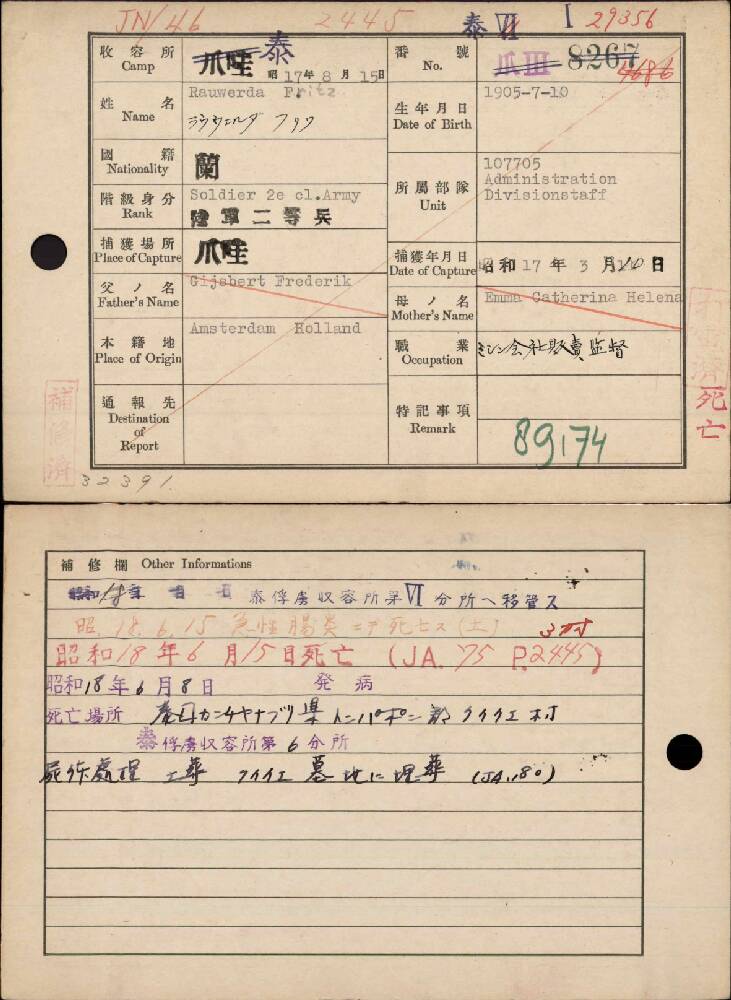 JN/46 2445 泰VI I 29356
收容所 Camp 爪哇 泰 昭17年8月15日
番號 No. 爪III 8267 4686
姓名 Name Rauwerda Fritz
ラウウェルダ フリツ
生年月日 Date of Birth 1905-7-10
國籍 Nationality 蘭
階級身分 Rank Soldier 2e cl.Army
陸軍二等兵
所屬部隊 Unit 107705
Administration
Divisionstaff
捕獲場所 Place of Capture 爪哇
捕獲年月日 Date of Capture 昭和17年3月 日
父ノ名 Father's Name Gijsbert Frederik
母ノ名 Mother's Name Emma Catherina Helena
本籍地 Place of Origin Amsterdam Holland
職業 Occupation 会社販賣監督
通報先 Destination of Report
特記事項 Remark 89174
死亡
補修済
32391.
補修欄 Other Informations
昭和18年 月 日 泰俘虜収容所第VI分所ヘ移管ス
昭.18.6.15 急性腸炎ニテ死亡ス(土)
昭和18年6月15日死亡 (JA.75 P.2445)
昭和18年6月8日 発病
死亡場所 泰国カンチヤナブリ県トンパポン郡クイクエ村
泰俘虜収容所第6分所
屍体處理 土葬 クイクエ墓地に埋葬 (JA.180)